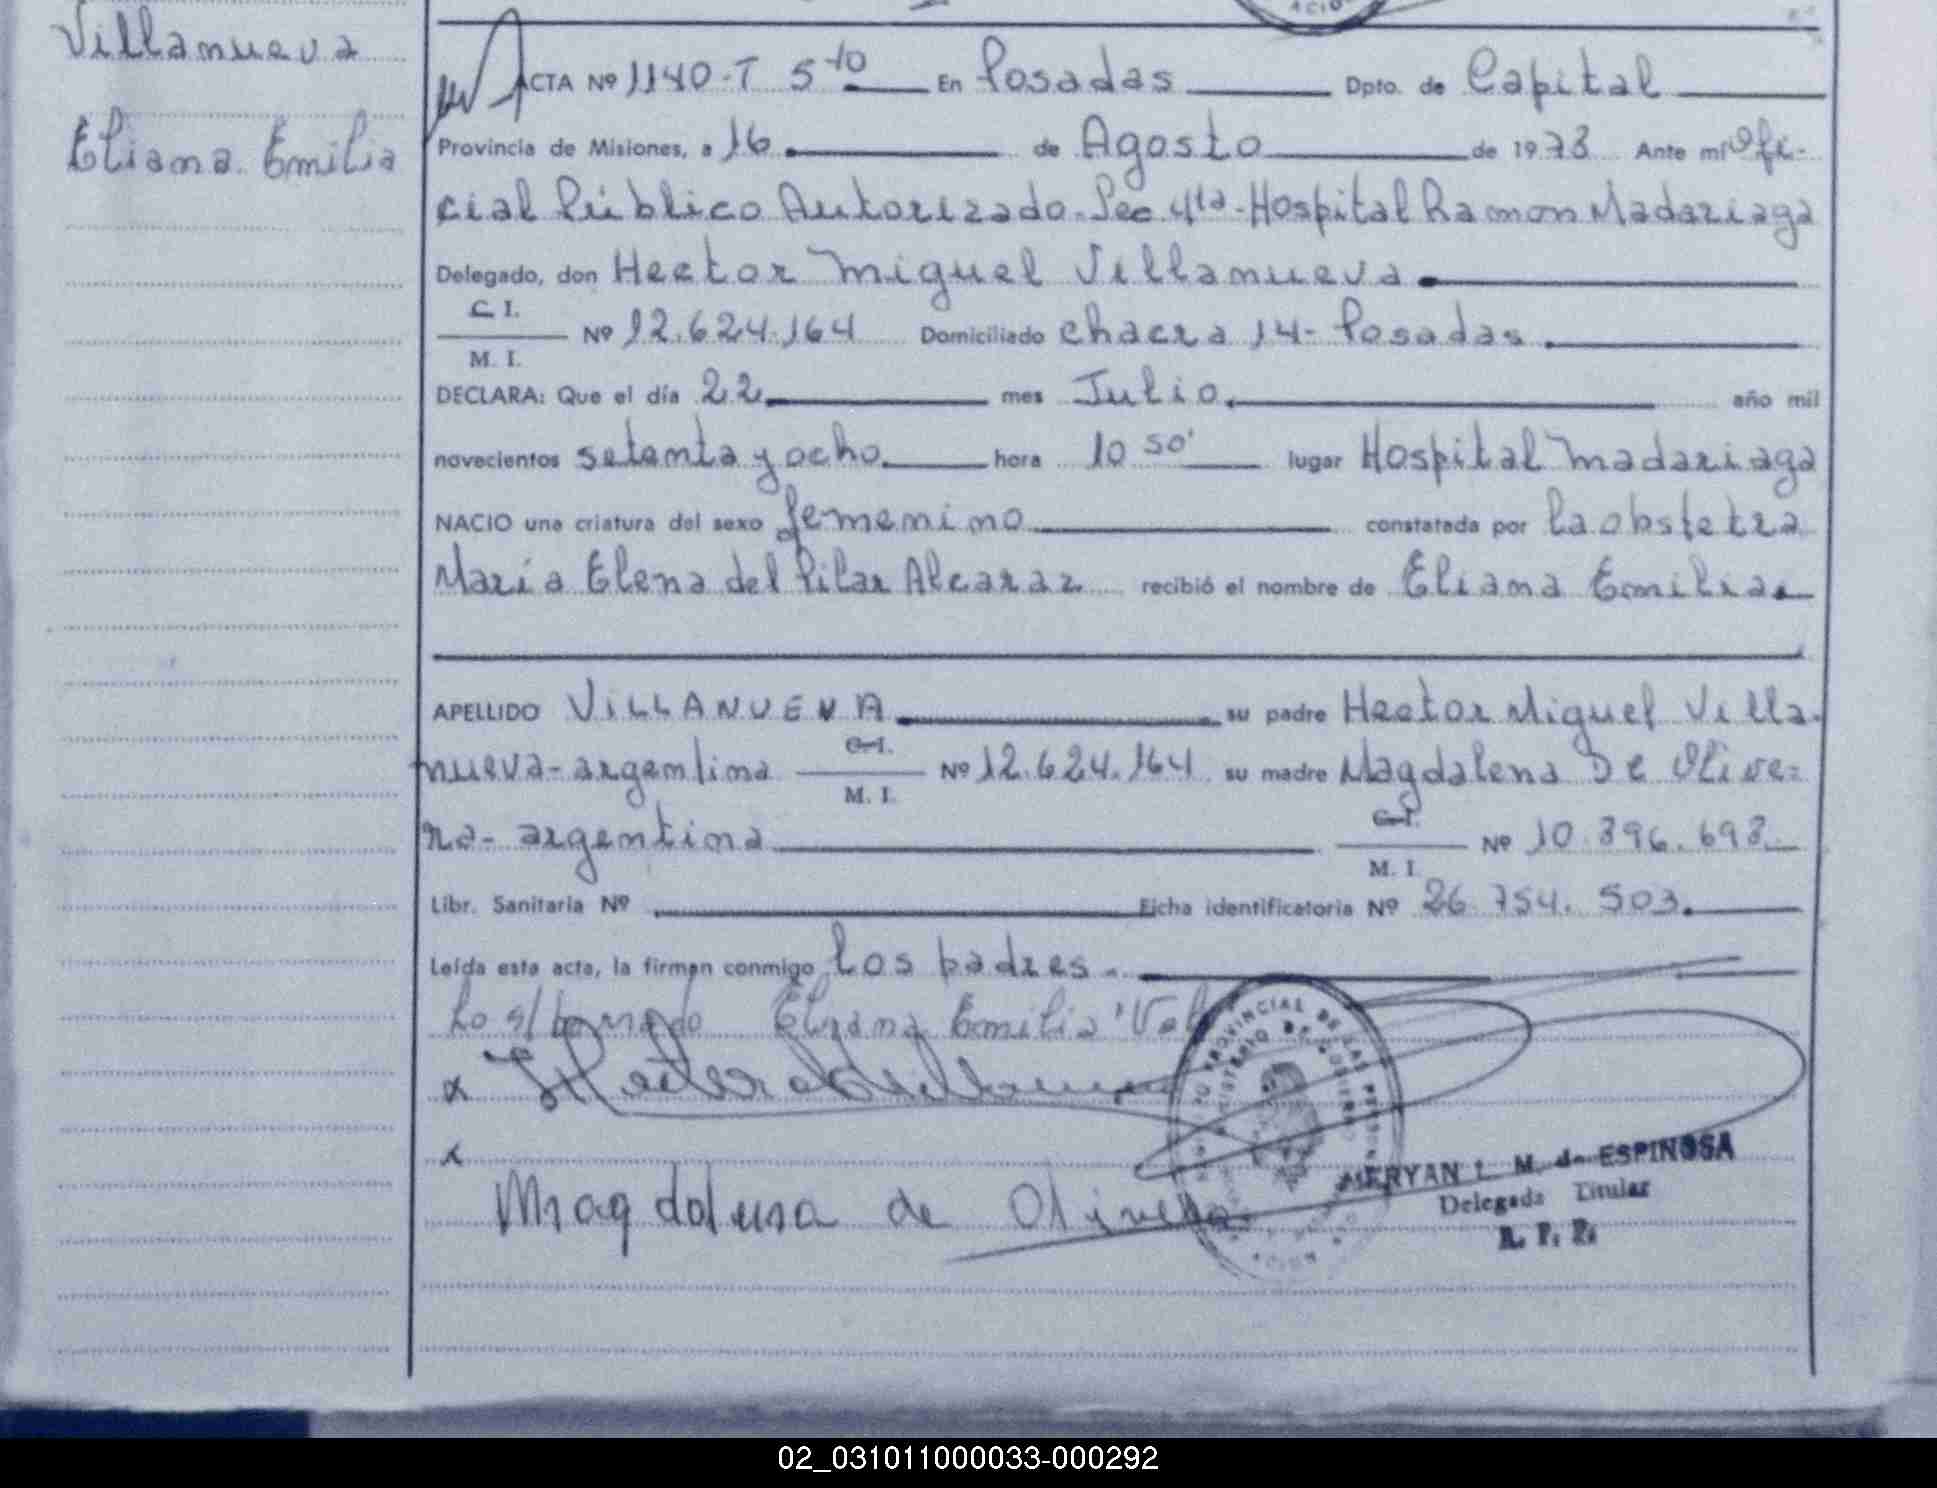 Villanueva
Eliana Emilia
ACTA Nº 1140-T 5to En Posadas Dpto. de Capital
Provincia de Misiones, a 16 de Agosto de 1978 Ante mí Ofi-
cial Público Autorizado-Sec. 4ta-Hospital Ramon Madariaga
Delegado, don Hector Miguel Villanueva
C I.
M. I.
Nº 12.624.164 Domiciliado chacra 14- Posadas.
DECLARA: Que el día 22 mes Julio. año mil
novecientos setenta y ocho hora 10 50' lugar Hospital Madariaga
NACIO una criatura del sexo femenino constatada por la obstetra
María Elena del Pilar Alcaraz recibió el nombre de Eliana Emilia.
APELLIDO VILLANUEVA su padre Hector Miguel Villa-
nueva-argentina C.I. M. I. Nº 12.624.164 su madre Magdalena De Olive=
ra- argentina C.I. M. I. Nº 10.896.698.
Libr. Sanitaria Nº Ficha identificatoria Nº 26.754.503.
Leída esta acta, la firman conmigo los padres.
Lo s/borrado Eliana Emilia "Vale
x
x
Magdalena de Olivera
MERYAN L. M. de ESPINOSA
Delegada Titular
R. P. P.
02_031011000033-000292